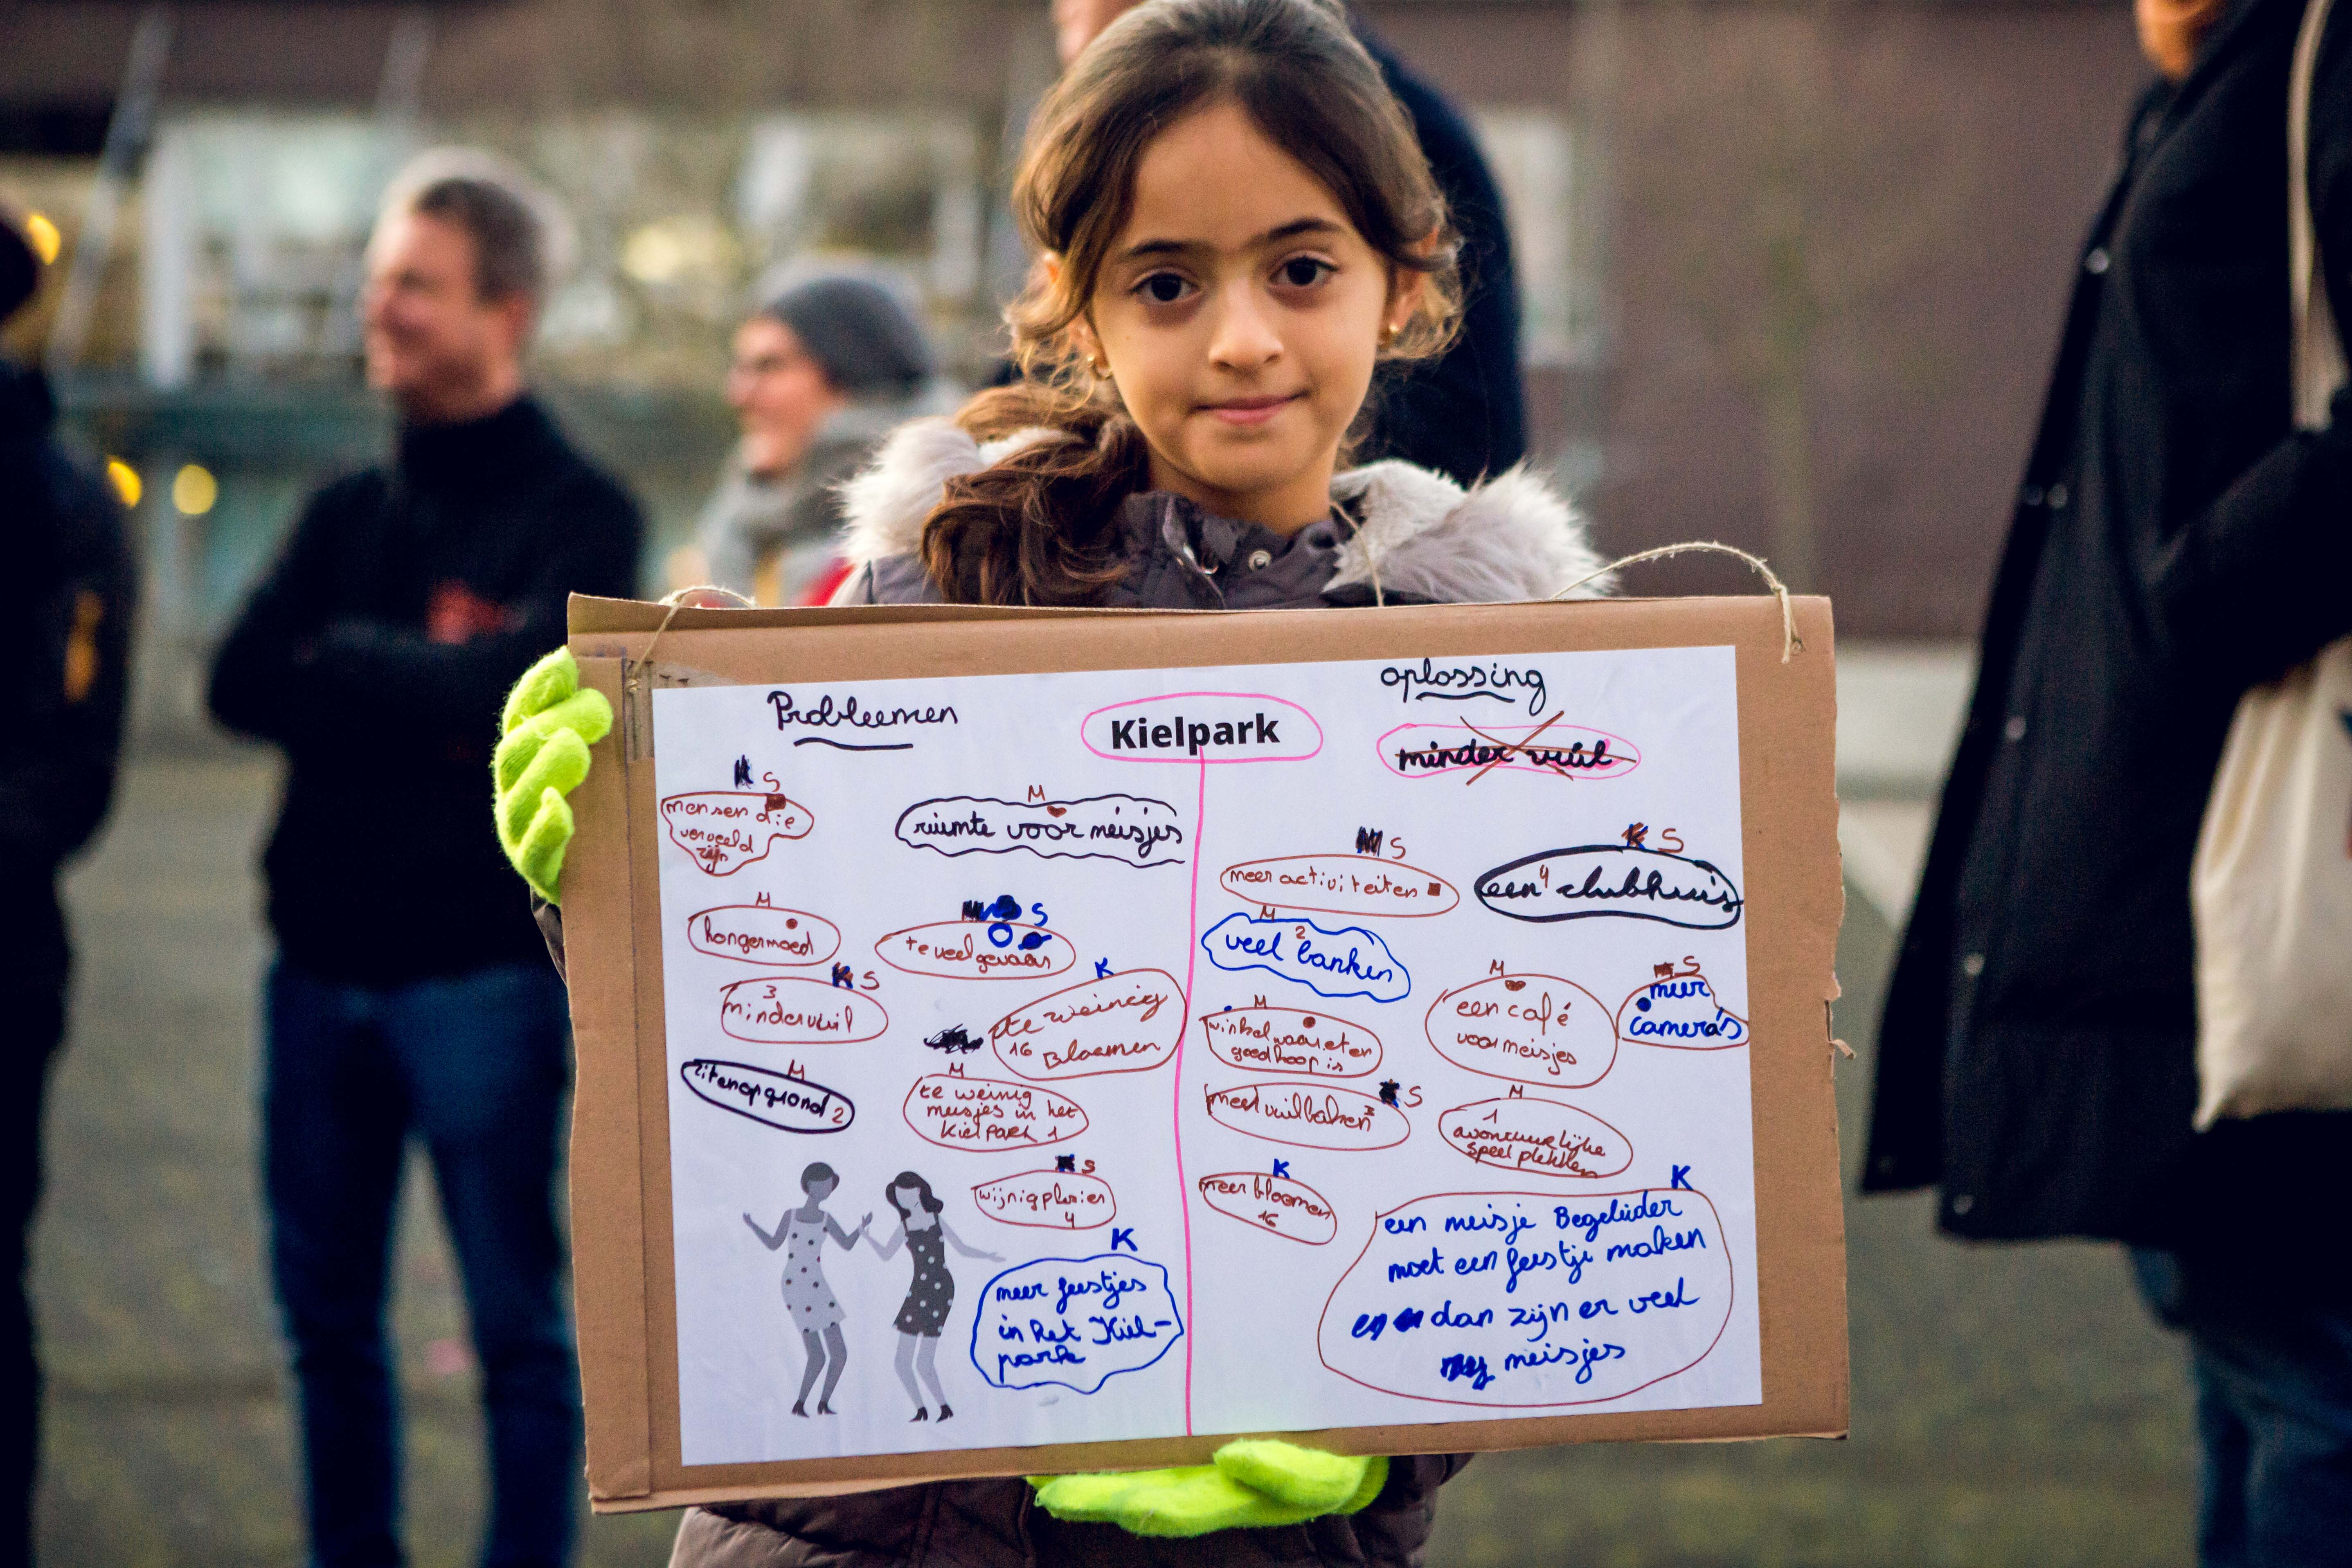 Probleemen
Kielpark
oplossing
minder vuil
S
mensen die
verveeld
zijn
M
ruimte voor meisjes
M
hongermoed
S
te veel gevaar
K S
3
minder vuil
K
te weinig
16 Bloemen
M
zitenopgrond 2
M
te weinig
meisjes in het
Kielpark 1
S
wijnig plezier
4
K
meer feestjes
in het Kiel-
park
M S
meer activiteiten
K S
een 4 clubhuis
M
2
veel banken
M
een café
voor meisjes
S
meer
camera's
M
winkel waar eten
goedkoop is
S
meer vuilbaken 3
M
1
avontuurlijke
speelplekken
K
meer bloemen
16
K
een meisje Begeleider
moet een feestje maken
en dan zijn er veel
meisjes